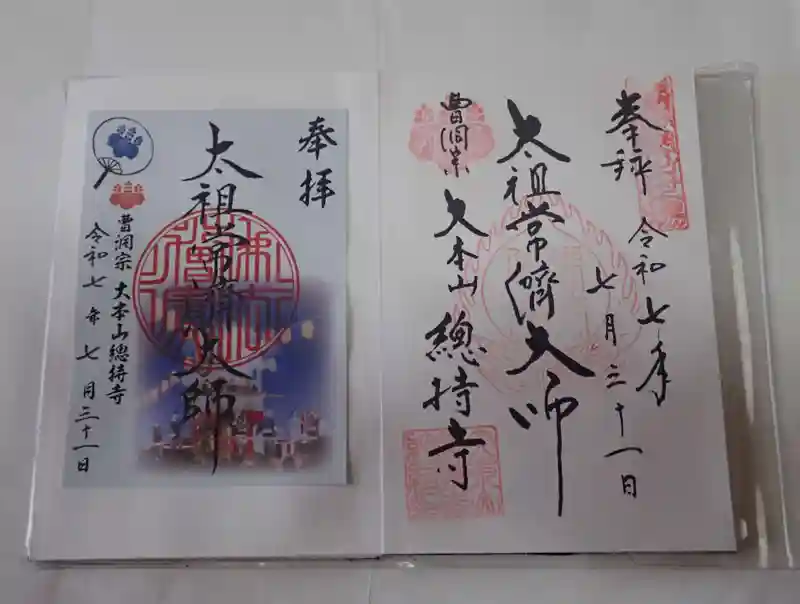 奉拝
令和七年
七月三十一日
太祖常濟大师
曹洞宗
大本山
總持寺
奉拝
太祖常濟大師
曹洞宗 大本山總持寺
令和七年七月三十一日